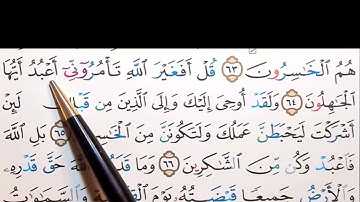 هُمُ الْخَاسِرُونَ ٦٣ قُلْ أَفَغَيْرَ اللَّهِ تَأْمُرُونِّي أَعْبُدُ أَيُّهَا
الْجَاهِلُونَ ٦٤ وَلَقَدْ أُوحِيَ إِلَيْكَ وَإِلَى الَّذِينَ مِنْ قَبْلِكَ لَئِنْ
أَشْرَكْتَ لَيَحْبَطَنَّ عَمَلُكَ وَلَتَكُونَنَّ مِنَ الْخَاسِرِينَ ٦٥ بَلِ اللَّهَ
فَاعْبُدْ وَكُنْ مِنَ الشَّاكِرِينَ ٦٦ وَمَا قَدَرُوا اللَّهَ حَقَّ قَدْرِهِ
وَالْأَرْضُ جَمِيعًا قَبْضَتُهُ يَوْمَ الْقِيَامَةِ وَالسَّمَاوَاتُ